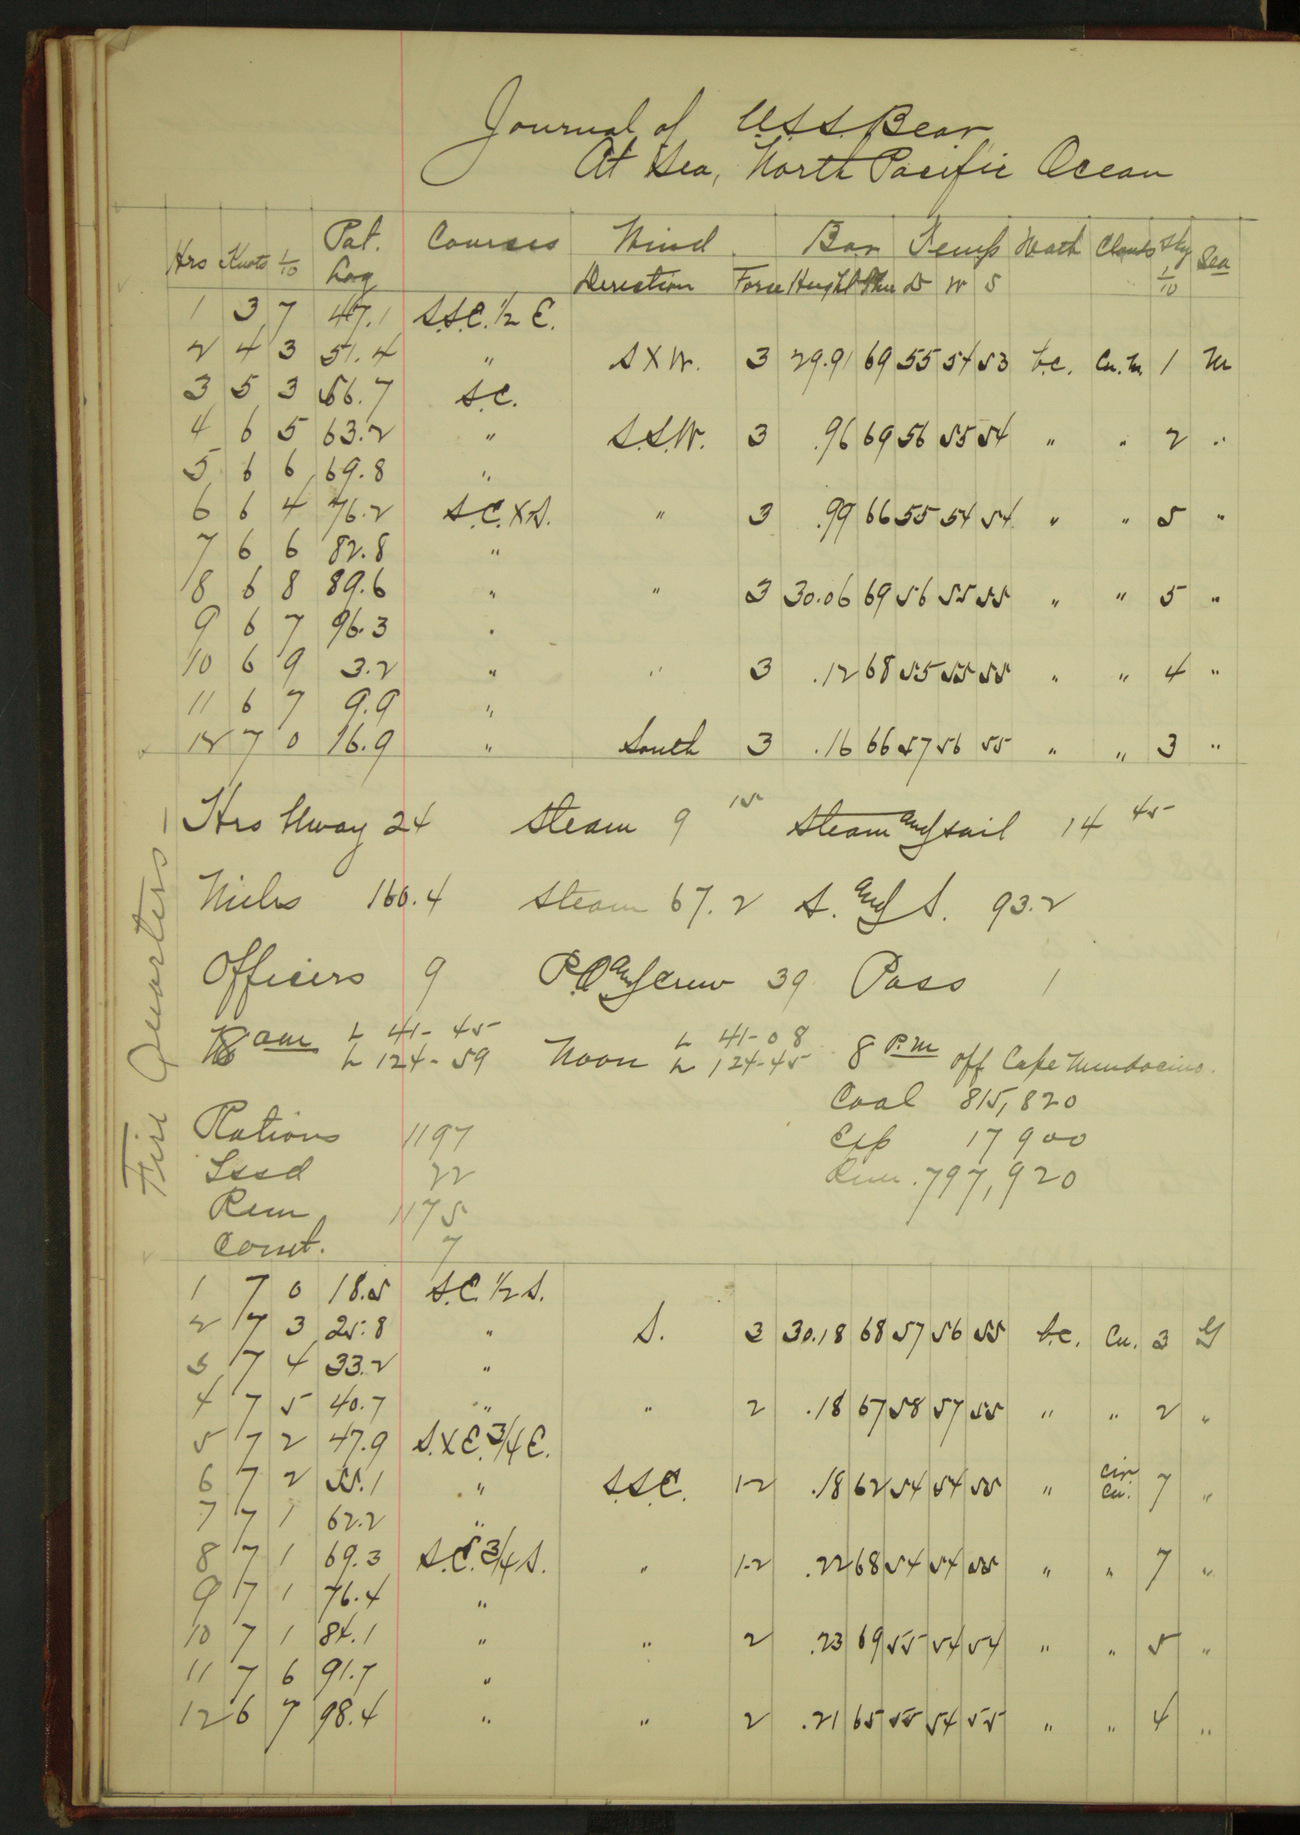 Journal of U.S.S. Bear
At Sea, North Pacific Ocean
Hrs Knots 1/10 Pat. Log Courses Wind Direction Force Bar Height Ther Temp D W S Weath Clouds Sky 1/10 Sea
1 3 7 47.1 S.S.E. 1/2 E.
2 4 3 51.4 " S X W. 3 29.91 69 55 54 53 b.c. Cu.N. 1 M
3 5 3 56.7 S.E.
4 6 5 63.2 " S.S.W. 3 .96 69 56 55 54 " " 2 "
5 6 6 69.8 "
6 6 4 76.2 S.E. X S. " 3 .99 66 55 54 54 " " 5 "
7 6 6 82.8 "
8 6 8 89.6 " " 3 30.06 69 56 55 55 " " 5 "
9 6 7 96.3 "
10 6 9 3.2 " " 3 .12 68 55 55 55 " " 4 "
11 6 7 9.9 "
12 7 0 16.9 " South 3 .16 66 57 56 55 " " 3 "
Hrs Unway 24 Steam 9 15 Steam and sail 14 45
Miles 160.4 Steam 67.2 S. and S. 93.2
Officers 9 P.O. and Crew 39 Pass 1
8 am L 41-45 Noon L 41-08 8 P.M. off Cape Mendocino.
L 124-59 L 124-45
Coal 815,820
Rations 1197 Exp 17900
Issd 22 Rem. 797,920
Rem 1175
Comt. 7
Fire Quarters –
1 7 0 18.5 S.E. 1/2 S.
2 7 3 25.8 " S. 3 30.18 68 57 56 55 b.c. Cu. 3 G
3 7 4 33.2 "
4 7 5 40.7 " " 2 .18 67 58 57 55 " " 2 "
5 7 2 47.9 S. X E. 3/4 E.
6 7 2 55.1 " S.S.E. 1-2 .18 62 54 54 55 " Cir. Cu. 7 "
7 7 1 62.2 "
8 7 1 69.3 S.E. 3/4 S. " 1-2 .22 68 54 54 55 " " 7 "
9 7 1 76.4 "
10 7 1 84.1 " " 2 .23 69 55 54 54 " " 5 "
11 7 6 91.7 "
12 6 7 98.4 " " 2 .21 65 55 54 55 " " 4 "